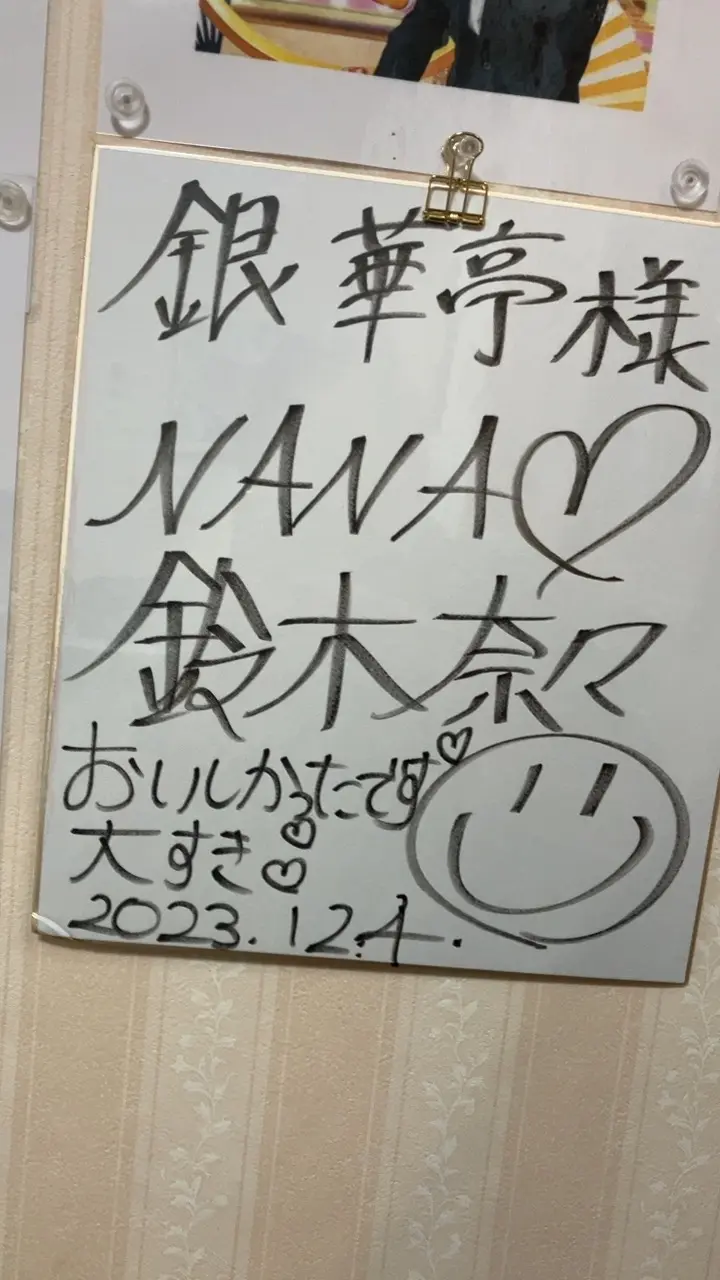 銀華亭様
NANA♡
鈴木奈々
おいしかったです♡
大すき♡♡
2023.12.4.